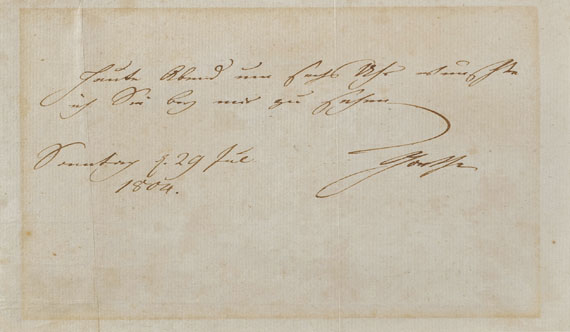 Heute Abend um sechs Uhr wünschte
ich Sie bey mir zu sehen
Sonntag d. 29 Jul
1804.
Goethe